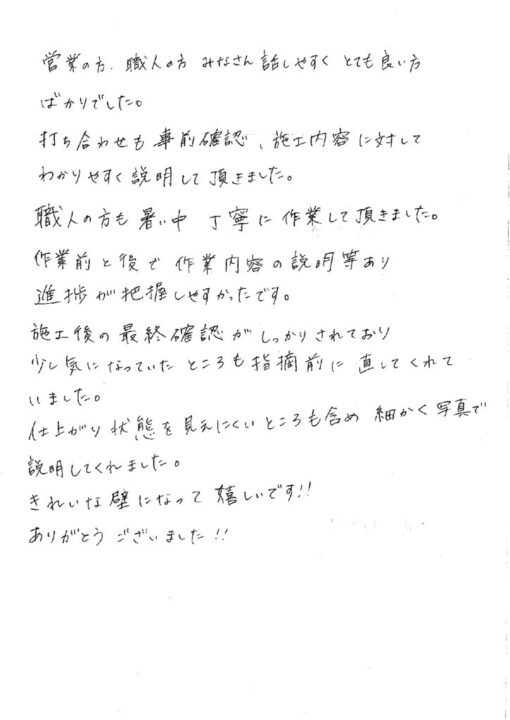 営業の方、職人の方 みなさん話しやすく とても良い方
ばかりでした。
打ち合わせも事前確認、施工内容に対して
わかりやすく説明して頂きました。
職人の方も暑い中 丁寧に作業して頂きました。
作業前と後で作業内容の説明等あり
進捗が把握しやすかったです。
施工後の最終確認がしっかりされており
少し気になっていたところも指摘前に直してくれて
いました。
仕上がり状態を見えにくいところも含め 細かく写真で
説明してくれました。
きれいな壁になって嬉しいです!!
ありがとうございました!!